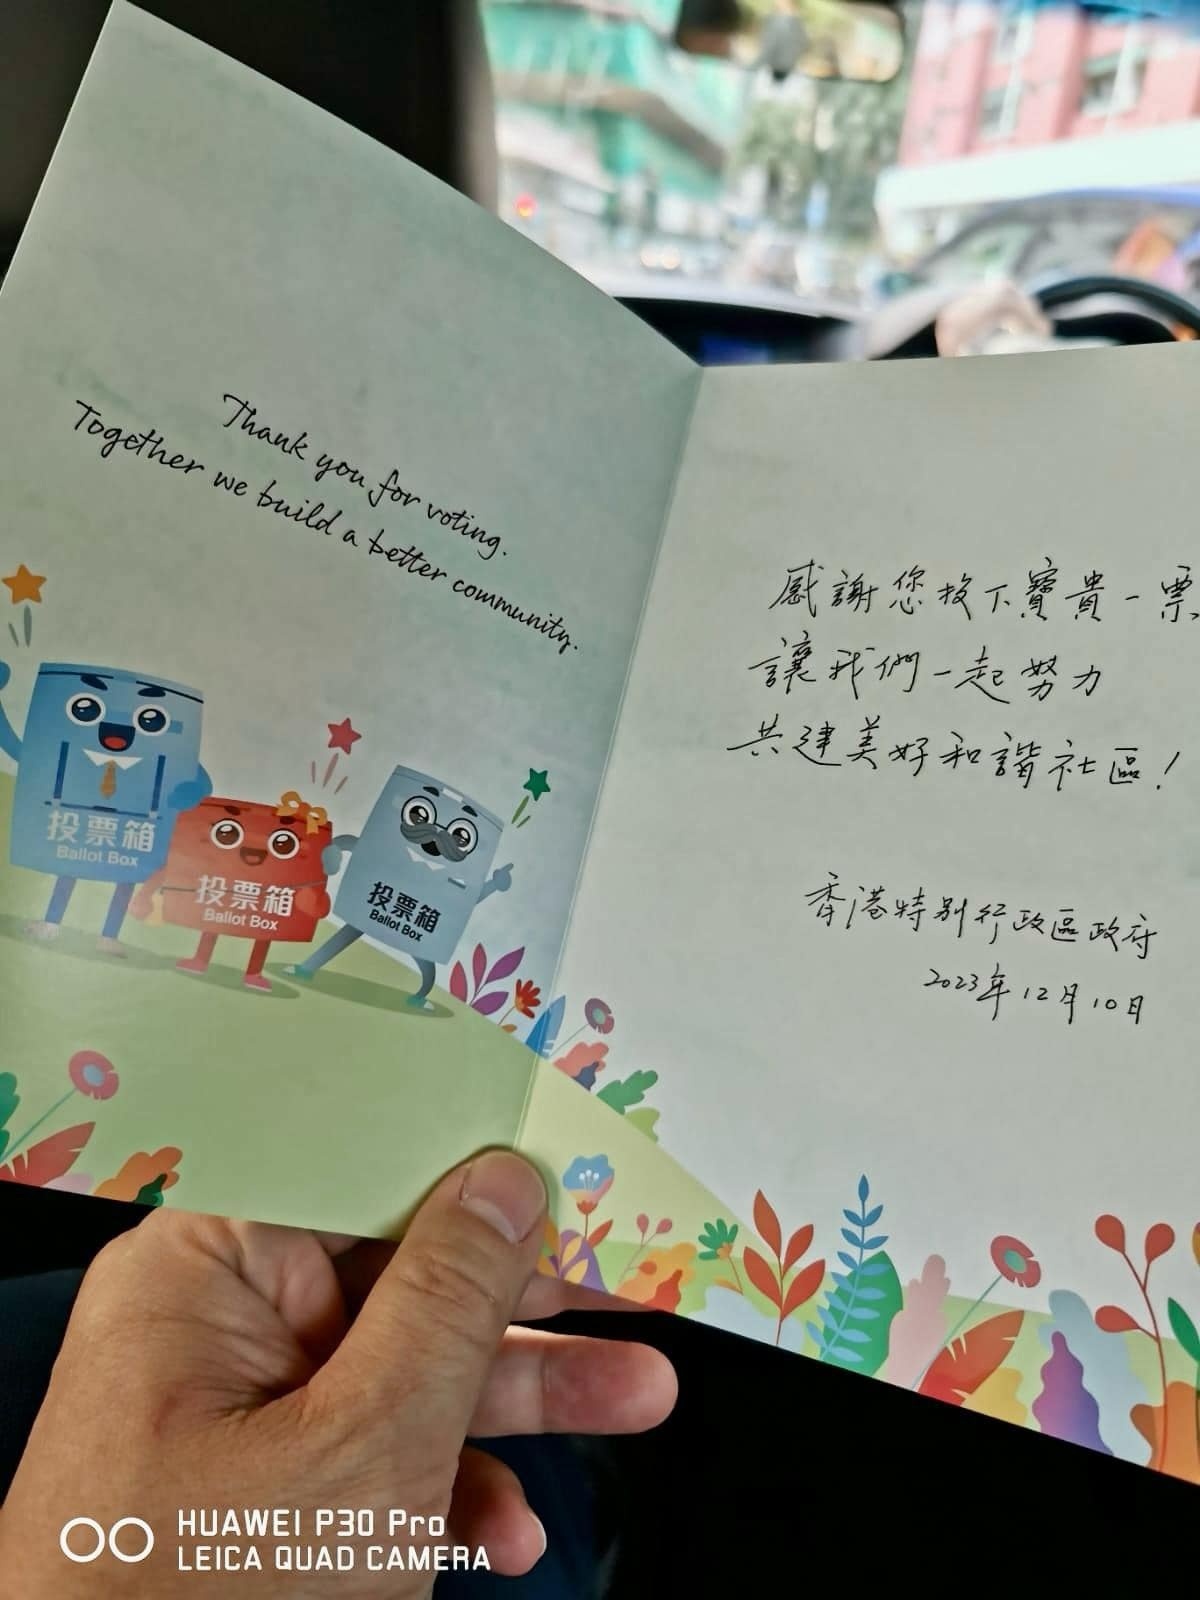 Thank you for voting.
Together we build a better community.
投票箱
Ballot Box
投票箱
Ballot Box
投票箱
Ballot Box
感謝您投下寶貴一票
讓我們一起努力
共建美好和諧社區！
香港特別行政區政府
2023年12月10日
HUAWEI P30 Pro
LEICA QUAD CAMERA